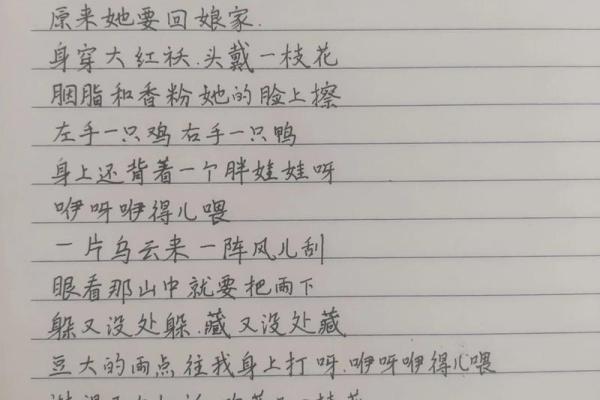 原来她要回娘家.
身穿大红袄.头戴一枝花
胭脂和香粉她的脸上擦
左手一只鸡右手一只鸭
身上还背着一个胖娃娃呀
咿呀咿得儿喂
一片乌云来一阵风儿刮
眼看那山中就要把雨下
躲又没处躲.藏又没处藏
豆大的雨点往我身上打呀.咿呀咿得儿喂